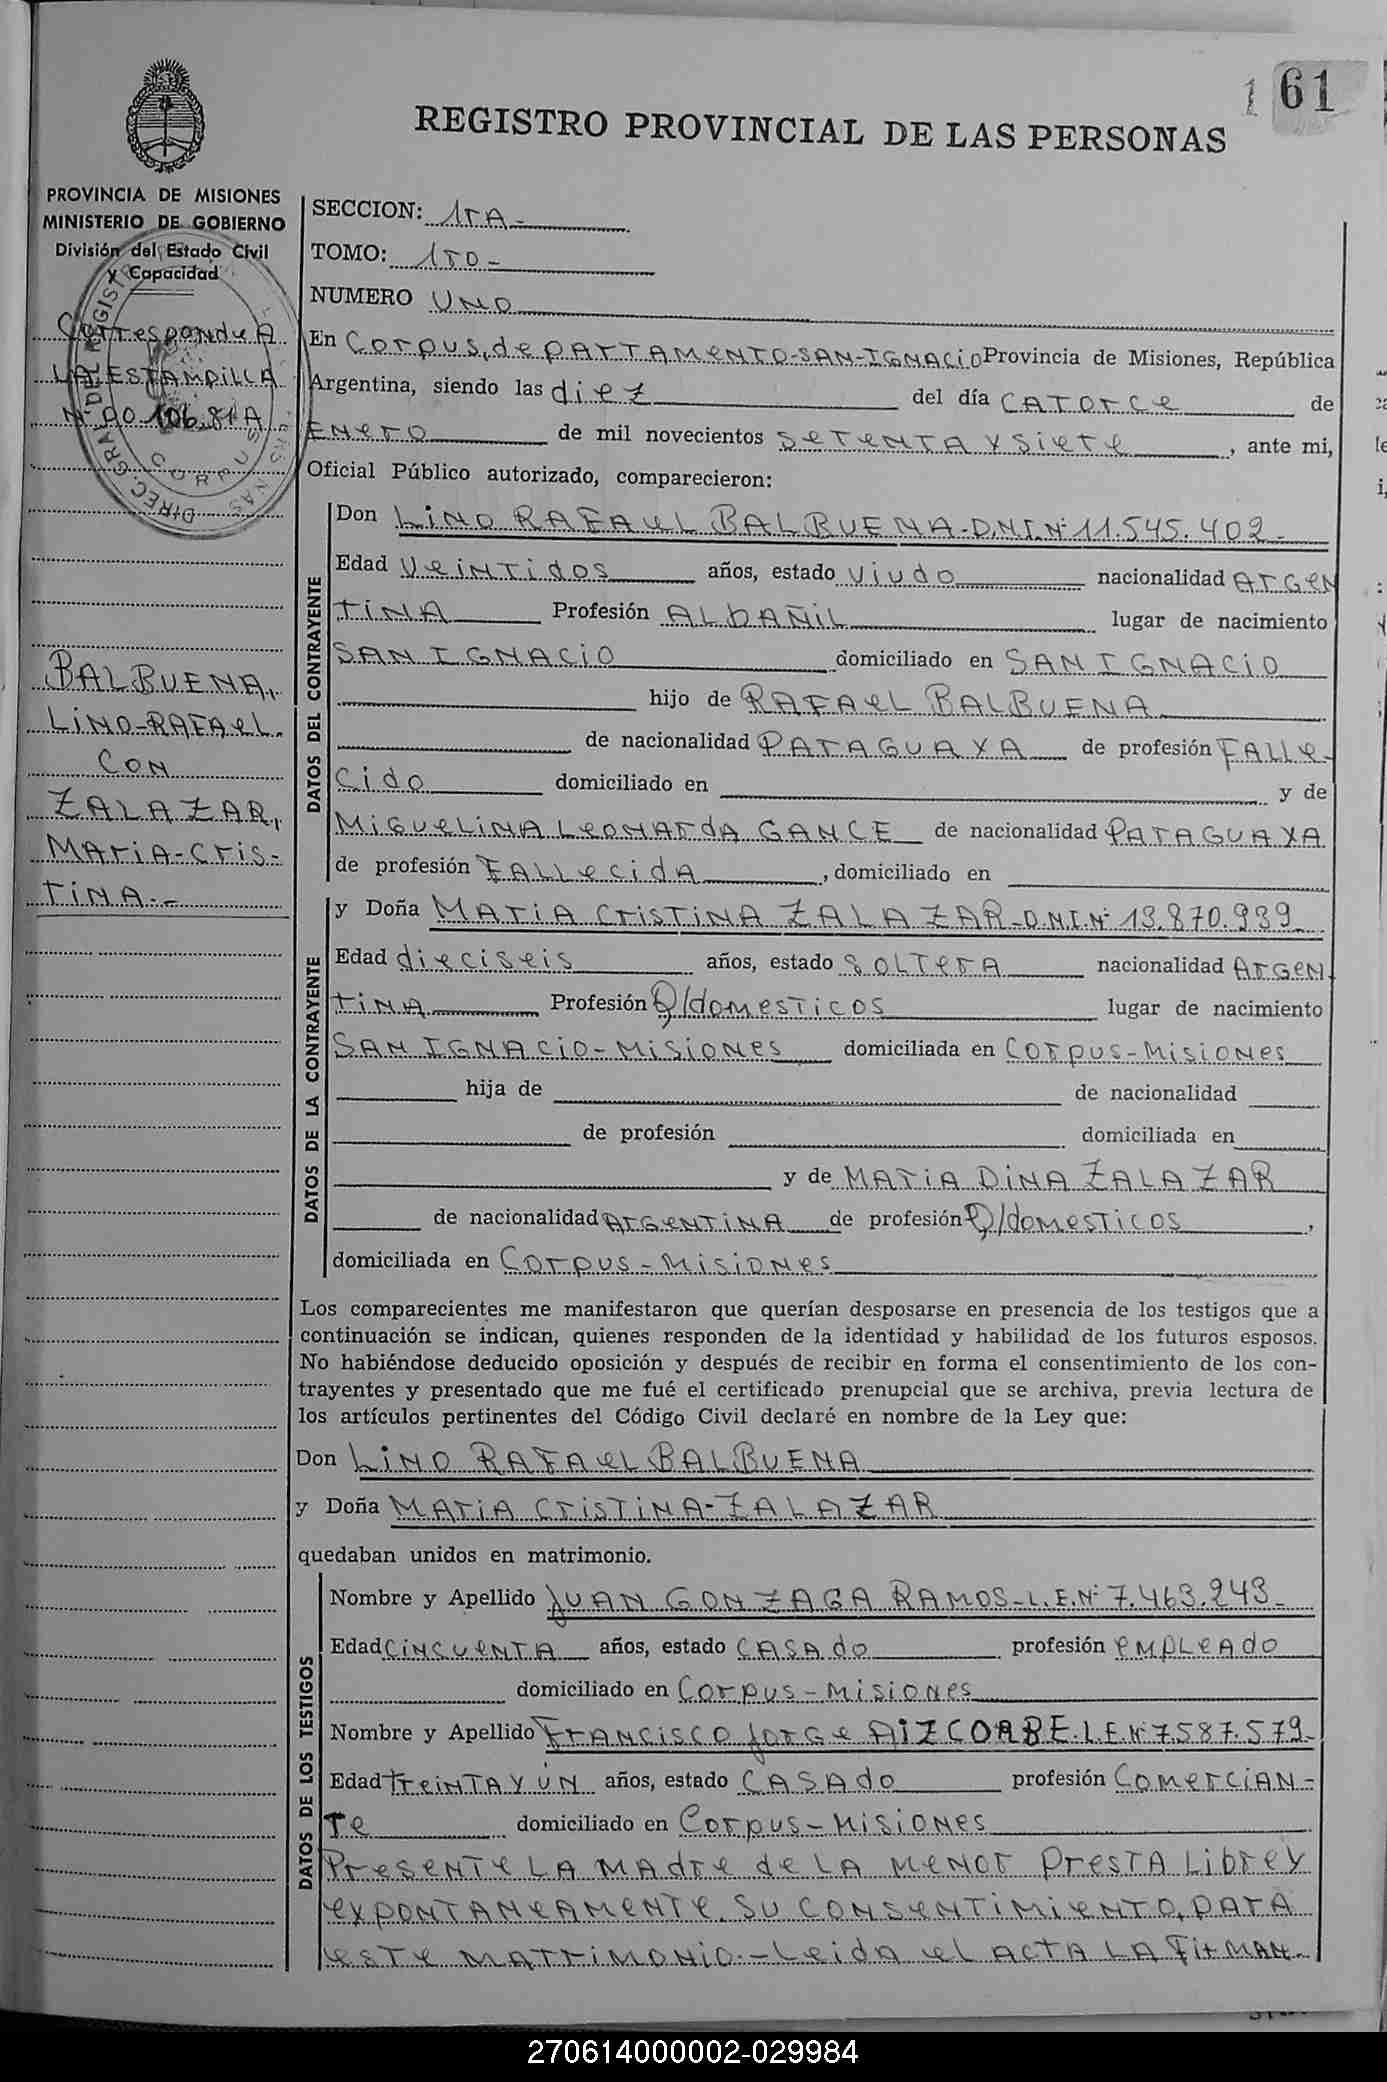 1 61
REGISTRO PROVINCIAL DE LAS PERSONAS
PROVINCIA DE MISIONES
MINISTERIO DE GOBIERNO
División del Estado Civil
y Capacidad
Corresponde A
LA ESTAMPILLA
BALBUENA,
LINO-RAFAEL.
CON
ZALAZAR,
MARIA-CRIS-
TINA.-
SECCION: 1RA-
TOMO: 1RO-
NUMERO UNO
En Corpus, departamento-SAN-IGNACIO Provincia de Misiones, República
Argentina, siendo las diez del día CATORCE de
ENERO de mil novecientos SETENTA Y SIETE, ante mi,
Oficial Público autorizado, comparecieron:
DATOS DEL CONTRAYENTE
Don LINO RAFAEL BALBUENA-D.N.I.Nº 11.545.402-
Edad Veintidos años, estado Viudo nacionalidad ARGEN
TINA Profesión ALBAÑIL lugar de nacimiento
SAN IGNACIO domiciliado en SAN IGNACIO
hijo de RAFAEL BALBUENA
de nacionalidad PARAGUAYA de profesión FALLE-
CIDO domiciliado en y de
MIGUELINA LEONARDA GANCE de nacionalidad PARAGUAYA
de profesión FALLECIDA, domiciliado en
DATOS DE LA CONTRAYENTE
y Doña MARIA CRISTINA ZALAZAR-D.N.I.Nº 13.870.939
Edad dieciseis años, estado SOLTERA nacionalidad ARGEN
TINA Profesión Q/domesticos lugar de nacimiento
SAN IGNACIO-MISIONES domiciliada en CORPUS-MISIONES
hija de de nacionalidad
de profesión domiciliada en
y de MARIA DINA ZALAZAR
de nacionalidad ARGENTINA de profesión Q/domesticos,
domiciliada en CORPUS-MISIONES
Los comparecientes me manifestaron que querían desposarse en presencia de los testigos que a
continuación se indican, quienes responden de la identidad y habilidad de los futuros esposos.
No habiéndose deducido oposición y después de recibir en forma el consentimiento de los con-
trayentes y presentado que me fué el certificado prenupcial que se archiva, previa lectura de
los artículos pertinentes del Código Civil declaré en nombre de la Ley que:
Don LINO RAFAEL BALBUENA
y Doña MARIA CRISTINA-ZALAZAR
quedaban unidos en matrimonio.
DATOS DE LOS TESTIGOS
Nombre y Apellido JUAN GONZAGA RAMOS-L.E.Nº 7.463.243-
Edad CINCUENTA años, estado CASADO profesión EMPLEADO
domiciliado en CORPUS-MISIONES
Nombre y Apellido FRANCISCO JORGE AIZCORBE.L.E.Nº 7.587.579-
Edad TREINTA Y UN años, estado CASADO profesión COMERCIAN-
TE domiciliado en CORPUS-MISIONES
Presente LA MADRE de LA MENOR PRESTA LIBRE Y
EXPONTANEAMENTE SU CONSENTIMIENTO, PARA
ESTE MATRIMONIO.-Leida el ACTA LA FIRMAN-
270614000002-029984